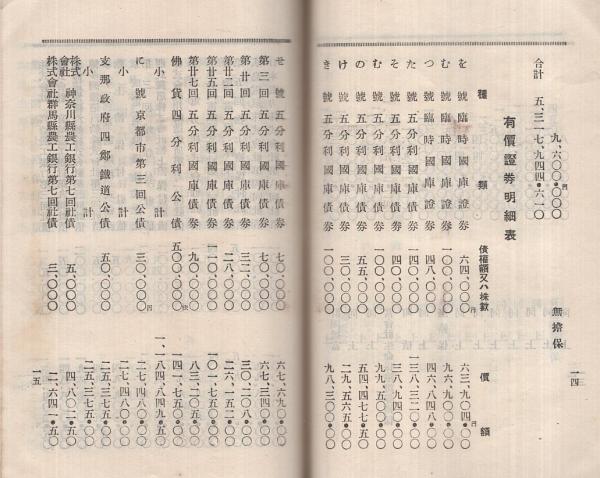 九、六〇〇・〇〇 無擔保
合計 五、三一七、九四四・六一〇
有價證券明細表
種類 債權額又ハ株數 價額
を號臨時國庫證券 六四、〇〇〇円 六三、九〇四・〇〇円
む號臨時國庫證券 一〇〇、〇〇〇 九六、九〇〇・〇〇
つ號臨時國庫證券 四八、〇〇〇 四六、八四八・〇〇
た號五分利國庫債券 一四〇、〇〇〇 一三八、三二〇・〇〇
そ號五分利國庫債券 四〇、〇〇〇 三八、九四〇・〇〇
む號五分利國庫債券 一〇〇、〇〇〇 九九、五〇〇・〇〇
の號五分利國庫債券 五五、〇〇〇 五四、四七七・五〇
け號五分利國庫債券 三〇、〇〇〇 二九、五六五・〇〇
き號五分利國庫債券 一〇〇、〇〇〇 九八、三〇〇・〇〇
一四
せ號五分利國庫債券 七〇、〇〇〇 六七、六九〇・〇〇
第三回五分利國庫債券 七〇、〇〇〇 六七、三四〇・〇〇
第廿回五分利國庫債券 三二、〇〇〇 三〇、二〇八・〇〇
第廿二回五分利國庫債券 二八、〇〇〇 二六、一五二・〇〇
第廿五回五分利國庫債券 一〇〇、〇〇〇 一〇一、七五〇・〇〇
第廿七回五分利國庫債券 九〇、〇〇〇 八三、二〇五・〇〇
佛貨四分利公債 五〇〇、〇〇〇法 一四一、七五〇・〇〇
小計 一、一八四、八四九・五〇
に號京都市第三回公債 三〇、〇〇〇円 二七、四八〇・〇〇
小計 二七、四八〇・〇〇
支那政府四鄭鐵道公債 五〇、〇〇〇 二五、三七五・〇〇
小計 二五、三七五・〇〇
株式會社神奈川縣農工銀行第七回社債 五、〇〇〇 四、八〇二・五〇
株式會社群馬縣農工銀行第七回社債 三、〇〇〇 二、六四一・五〇
一五